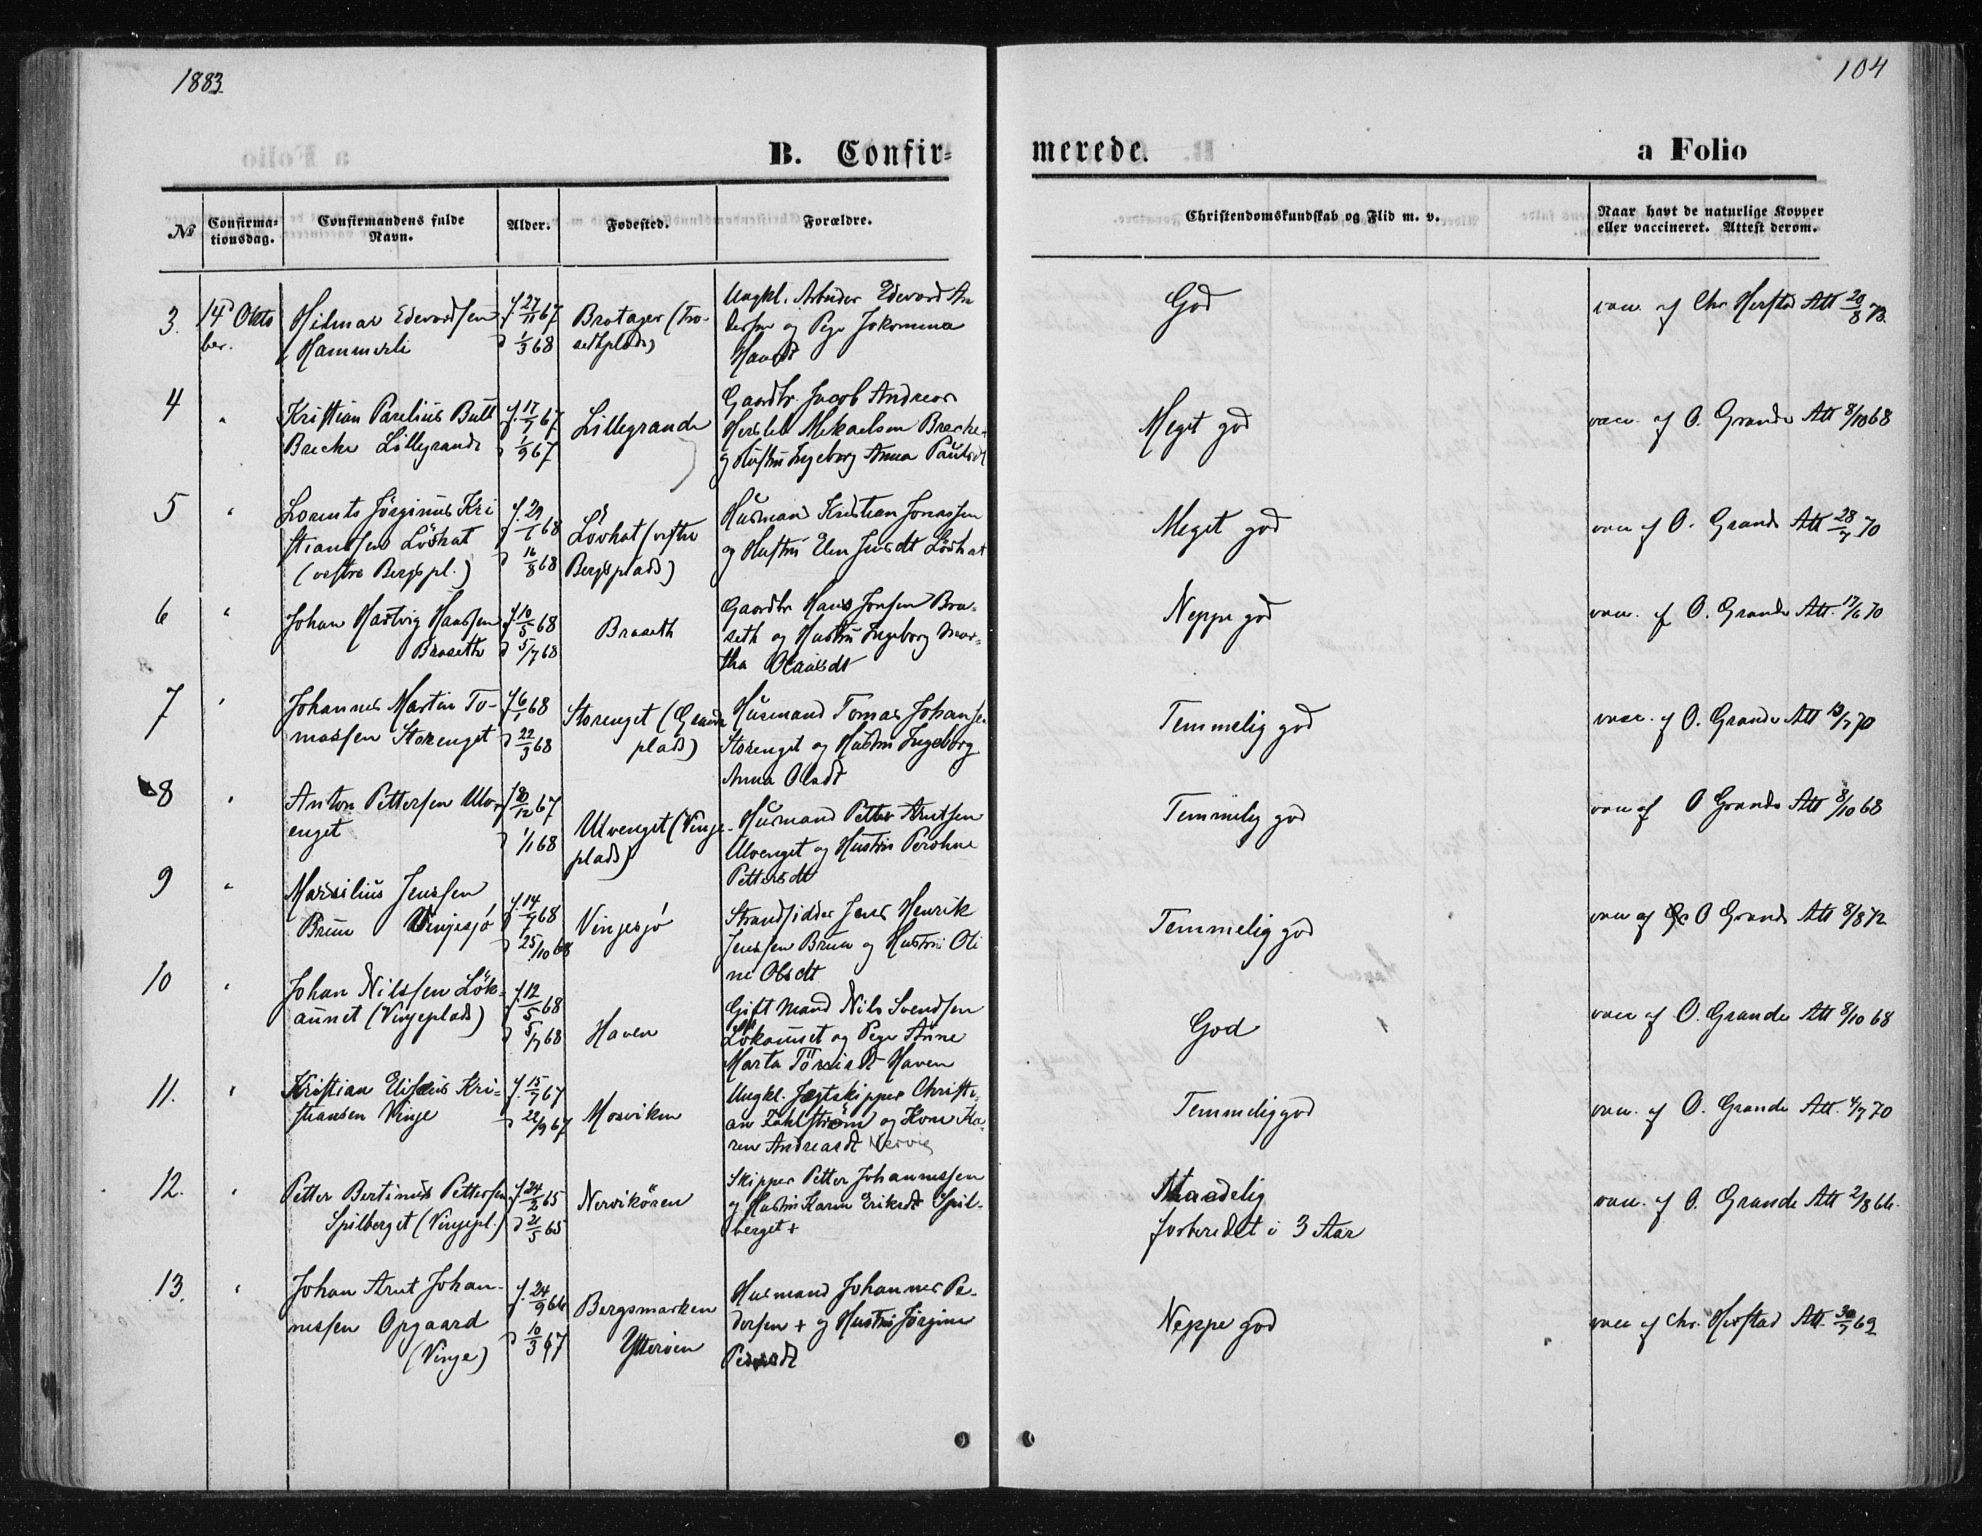 1883.
104
B. Confir-
merede.
a Folio
№
Confirma-
tionsdag.
Confirmandens fulde
Navn.
Alder.
Fødested.
Forældre.
Christendomskundskab og Flid m. v.
Naar havt de naturlige Kopper
eller vaccineret. Attest derom.
3.
14 Okto
ber.
Hilmar Edevardsen
Hammerli
f. 27/11 67
d 1/3 68
Bratager (Tro-
sethplads)
Ungkl. Arbeider Edevard An
dersen og Pige Jokomina
God
vac. af Chr. Herstad Att 20/8 73.
4
"
Kristian Parelius Bull
Brecke Lillegrande
f. 17/7 67
d 1/9 67
Lillegrande
Gaardbr. Jacob Andreas
Hersleb Mekaelsen Brecke
og Hustru Ingeborg Anna Paulsdt
Meget god
vacc. af O. Grande Att 8/10 68
5
"
Lorents Jørginus Kri
stiansen Lövhat
(vestre Bergspl.)
f. 29/1 68
d 16/8 68
Lövhat (vestre
Bergsplads)
Husmand Kristian Jonassen
og Hustru Elen Jensdt Lövhat
Meget god
vac af O. Grande Att 28/7 70
6
"
Johan Hartvig Hanssen
Braseth
f. 10/5 68
d 5/7 68
Braseth
Gaardbr Hans Jonsen Bra-
seth og Hustru Ingeborg Mar-
tha Olausdt
Neppe god
vac. af O. Grande Att. 17/6 70
7
"
Johannes Martin To-
massen Storenget
f. 6/1 68
d 22/3 68
Storenget (Grande
plads)
Husmand Tomas Johansen
Storenget og Hustru Ingeborg
Anna Olsdt
Temmelig god
vac. af O. Grande Att 13/7 70
8
"
Anton Pettersen Ulv
enget
f. 8/12 67
d 1/1 68
Ulvenget (Vinje-
plads)
Husmand Petter Arntsen
Ulvenget og Hustru Perohne
Pettersdt
Temmelig god
vac af O Grande Att 8/10 68
9
"
Marsilius Jenssen
Bruun Vinjesjø
f. 14/9 68
d 25/10 68
Vinjesjø
Strandsidder Jens Henrik
Jenssen Bruun og Hustru Oli
ne Olsdt
Temmelig god
vac af O Grande Att 8/8 72
10
"
Johan Nilssen Lök-
aunet (Vinjeplads)
f. 12/5 68
d 5/7 68
Haven
Gift Mand Nils Svendsen
Lökaunet og Pige Anne
Marta Haven
God
vac af O. Grande Att 8/10 68
11.
"
Kristian Elisæus Kri-
stiansen Vinje
f. 15/7 67
d 22/9 67
Mosviken
Ungkl. Jægtskipper Christi-
an Fahlström og Kone Ka-
ren Andreasdt Nervig
Temmelig god
vac. af O. Grande Att. 4/7 70
12.
"
Petter Bertinus Pettersen
Spilberget (Vinjepl.)
f. 24/2 65
d 21/5 65
Nervikören
Skipper Petter Johannessen
og Hustru Karen Eriksdt Spil-
berget +
Maadelig
forberedet i 3 Aar
vac. af O. Grande Att 2/8 66.
13.
"
Johan Arnt Johan-
nessen Opgaard
(Vinje)
f. 24/9 66
d 10/3 67
Bergsmarken
Ytterøen
Husmand Johannes Pe-
dersen + og Hustru Jörgine
Pedersdt
Neppe god
vac af Chr. Herstad Att. 30/7 69